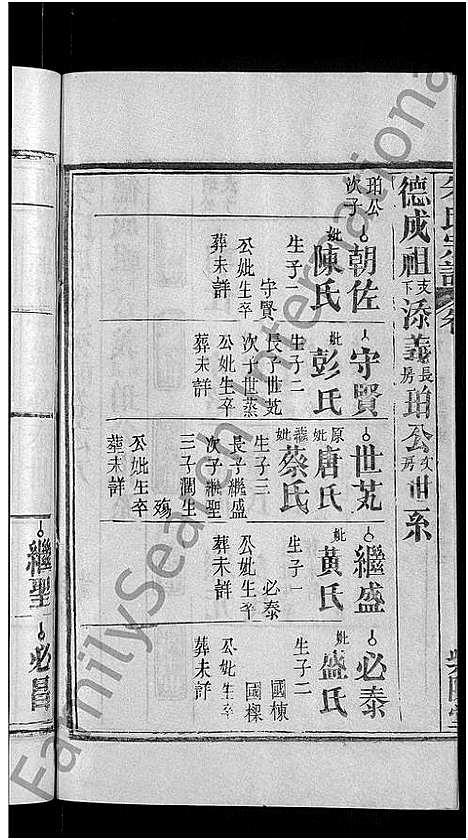 朱氏宗譜
德成祖支下添義長房珀公次房世系
珀公次子
朝佐
妣陳氏
生子一
守賢
公妣生卒
葬未詳
守賢
妣彭氏
生子二
長子世芄
次子世蒸
公妣生卒
葬未詳
世芄
原妣唐氏
妣蔡氏
生子三
長子繼盛
次子繼聖
三子潤生
殤
公妣生卒
葬未詳
繼盛
妣黃氏
生子一
必泰
公妣生卒
葬未詳
必泰
妣盛氏
生子二
國棟
國樑
公妣生卒
葬未詳
繼聖
必昌
FamilySearch International